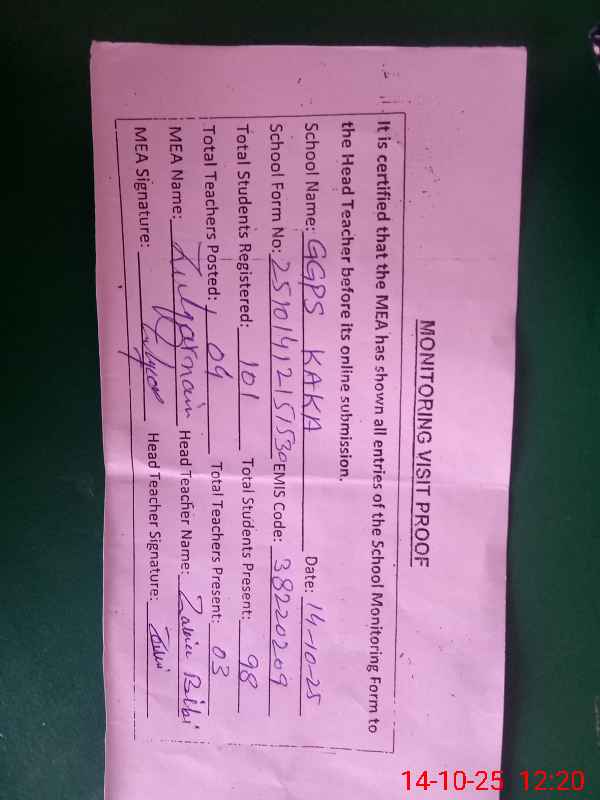 MONITORING VISIT PROOF
It is certified that the MEA has shown all entries of the School Monitoring Form to
the Head Teacher before its online submission.
School Name: GGPS KAKA Date: 14-10-25
School Form No: 25101412151530 EMIS Code: 38220209
Total Students Registered: 101 Total Students Present: 98
Total Teachers Posted: 04 Total Teachers Present: 03
MEA Name: Zulqarnain Head Teacher Name: Zabia Bibi
MEA Signature: Head Teacher Signature:
14-10-25 12:20